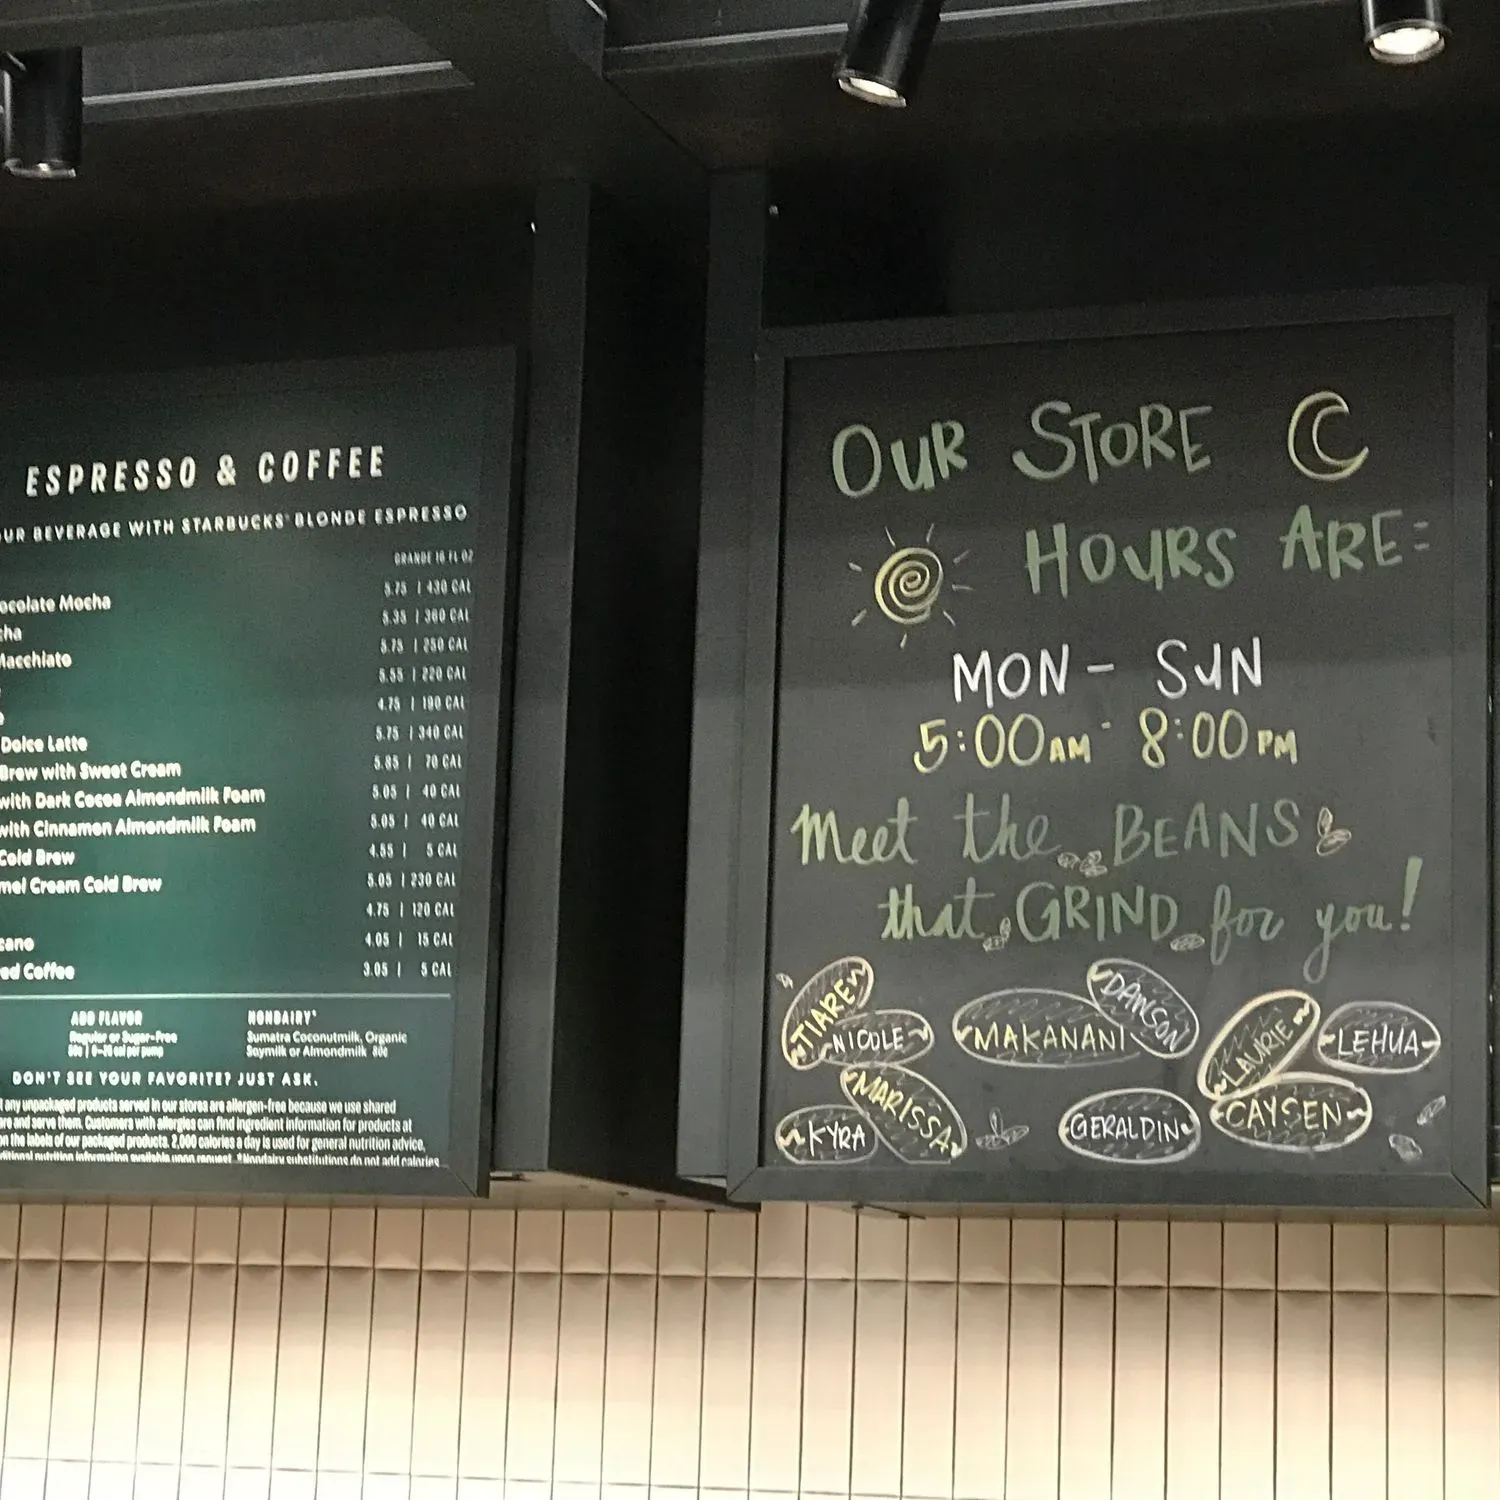 ESPRESSO & COFFEE
UR BEVERAGE WITH STARBUCKS BLONDE ESPRESSO
GRANDE 16 FL OZ
5.75 | 430 CAL
ocolate Mocha 5.35 | 360 CAL
cha 5.75 | 250 CAL
Macchiato 5.55 | 220 CAL
4.75 | 190 CAL
5.75 | 340 CAL
Dolce Latte 5.85 | 70 CAL
Brew with Sweet Cream 5.05 | 40 CAL
with Dark Cocoa Almondmilk Foam 5.05 | 40 CAL
with Cinnamon Almondmilk Foam 4.55 | 5 CAL
Cold Brew 5.05 | 230 CAL
mel Cream Cold Brew 4.75 | 120 CAL
cano 4.05 | 15 CAL
ed Coffee 3.05 | 5 CAL
ADD FLAVOR
Regular or Sugar-Free
NONDAIRY*
Sumatra Coconutmilk, Organic
Soymilk or Almondmilk 80¢
DON'T SEE YOUR FAVORITE? JUST ASK.
t any unpackaged products served in our stores are allergen-free because we use shared
are and serve them. Customers with allergies can find ingredient information for products at
on the labels of our packaged products. 2,000 calories a day is used for general nutrition advice,
ditional nutrition information available upon request. *Nondairy substitutions do not add calories
OUR STORE
HOURS ARE:
MON - SUN
5:00AM - 8:00PM
Meet the BEANS
that GRIND for you!
TIARE
NICOLE
MAKANANI
DAWSON
LAURIE
LEHUA
MARISSA
KYRA
GERALDIN
CAYSEN